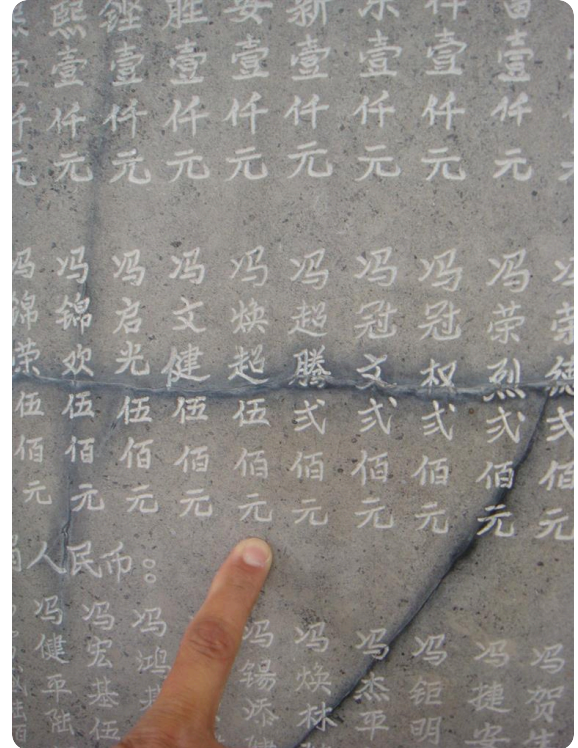 壹仟元
熙壹仟元
铿壹仟元
胜壹仟元
安壹仟元
新壹仟元
壹仟元
祥壹仟元
壹仟元
冯錦荣伍佰元
冯錦欢伍佰元
冯启光伍佰元
冯文健伍佰元
冯焕超伍佰元
冯超腾弍佰元
冯冠文弍佰元
冯冠权弍佰元
冯荣烈弍佰元
冯荣德弍佰元
人民币：
冯健平陆
冯宏基伍
冯鸿基
冯锡添
冯焕林
冯杰平
冯钜明
冯捷安
冯贺